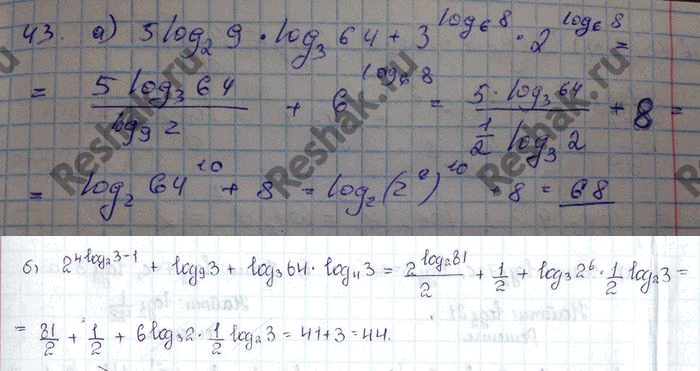 43. а) 5 log₂ 9 · log₃ 64 + 3^(log₆ 8) · 2^(log₆ 8) =
= (5 log₃ 64)/(log₉ 2) + 6^(log₆ 8) = (5 · log₃ 64)/(1/2 log₃ 2) + 8 =
= log₂ 64^10 + 8 = log₂ (2^6)^10 + 8 = 68
б) 2^(4 log₂ 3 - 1) + log₉ 3 + log₃ 64 · log₄ 3 = (2^(log₂ 81))/2 + 1/2 + log₃ 2⁶ · 1/2 log₂ 3 =
= 81/2 + 1/2 + 6 log₃ 2 · 1/2 log₂ 3 = 41 + 3 = 44.
Reshak.ru
Reshak.ru
Reshak.ru